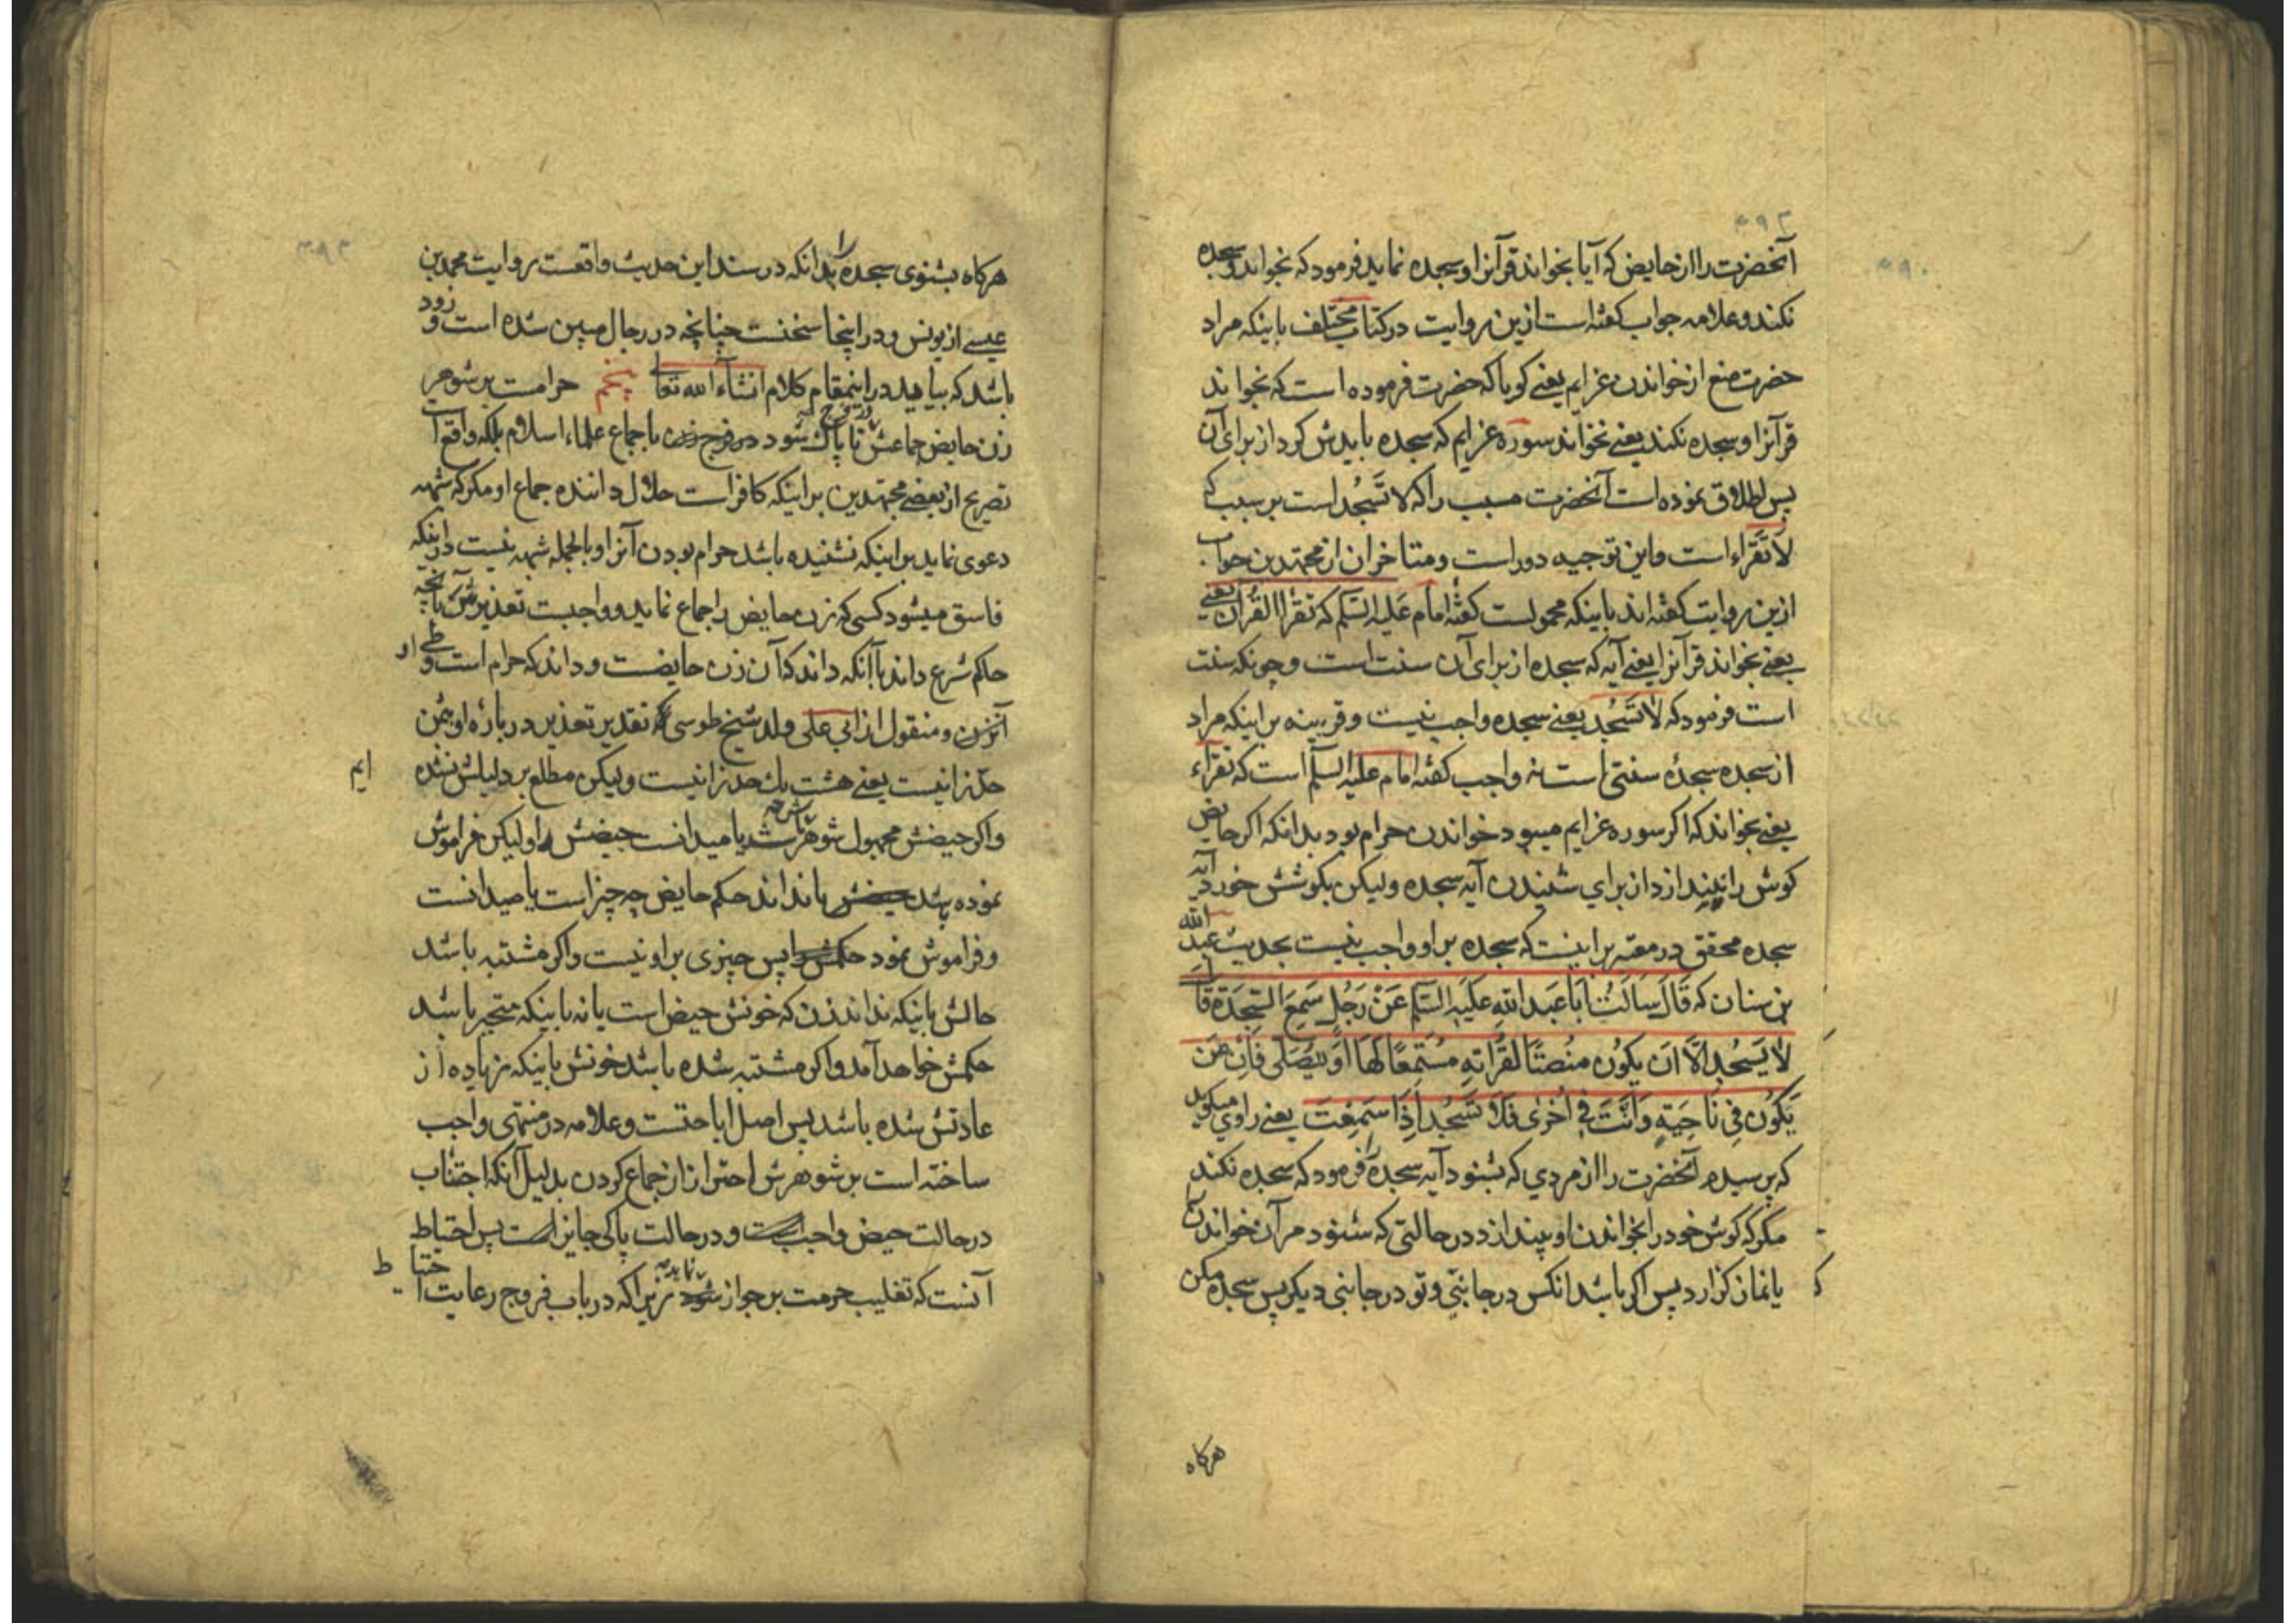 آنحضرت را از حایض که آیا بخواند قرآنرا و سجده نماید فرمود که بخواند و سجده
نکند و علامه جواب کفته است ازین روایت در کتاب مختلف باینکه مراد
حضرت منع از خواندن عزایم یعنے کویا که حضرت فرموده است که نخواند
قرآنرا و سجده نکند یعنے نخواند سوره عزایم که سجده بایدش کرد از برای آن
پس اطلاق نموده است آنحضرت مسبب را که لا تَسْجُد است بر سبب که
لا تَقْراء است و این توجیه دور است و متاخران از مجتهدین جواب
ازین روایت کفته اند باینکه محمولست کفتهٔ امام عَلیه السَّلم که تقرأ القُرآن یعنے
یعنے بخواند قرآنرا یعنے آیه که سجده از برای آن سنت است و چونکه سنت
است فرمود که لا تَسْجُد یعنے سجده واجب نیست و قرینه بر اینکه مراد
از سجده سجدهٔ سنتی است نه واجب کفتهٔ امام علیه السلّم است که تقرَاء
یعنے بخواند که اکر سوره عزایم میبود خواندن حرام بود بدانکه اکر حایض
کوش را نیندازد از برای شنیدن آیه سجده ولیکن بکوشش خورد آیه
سجده محقق در معتبر براینست که سجده بر او واجب نیست بحدیث عبد الله
بن سنان که قَالَ سَاَلتُ اَبَا عَبدِ اللّهِ عَلَیهِ السَّلم عَنْ رَجُلٍ سَمِعَ السَّجدَةَ قَالَ
لَا یَسْجُد اِلَّا اَن یَکُون مُنْصِتًا لِقَرَاتِهِ مُسْتَمِعًا لَهَا اَو یُصَلّی فَاِنْ مَن
یَکُون فِی نَاحِیَةٍ وَ اَنْتَ فِی اُخْرٰی فَلَا تَسْجُد اِذَا سَمِعْتَ یعنے راوی میکوید
که پرسیدم آنحضرت را از مردی که بشنود آیه سجده را فرمود که سجده نکند
مکر که کوش خود را بخواندن او بیندازد در حالتی که شنود مر آن خواندن
یا نماز کزارد پس اکر باشد انکس در جانبی و تو در جانبی دیکر پس سجده مکن
هرکاه
هرکاه بشنوی سجده را بدانکه در سند این حدیث واقعست روایت محمد بن
عیسے از یونس و در اینجا سخنست چنانچه در رجال مبین شده است و زود
باشد که بیاید در اینمقام کلام انشآء الله تعالی پنجم حرامست بر شوهر
زن حایض جماعش تا پاک شود در فرج باجماع علماء اسلام بلکه واقع است
تصریح از بعضے مجتهدین بر اینکه کافر است حلال دانندهٔ جماع او مکر که شبهه
دعوی نماید بر اینکه نشنیده باشد حرام بودن آنرا و بالجمله شبهه نیست در اینکه
فاسق میشود کسی که زن حایض را جماع نماید و واجبست تعذیرش بآنچه
حاکم شرع داند با آنکه داند که آن زن حایضست و داند که حرام است وطے او
آنزن و منقول از ابی علی ولد شیخ طوسی که تقدیر تعذیر در باره او بثمن
حدّ زانیست یعنے هشت یک حد زانیست ولیکن مطلع بر دلیلش نشده ایم
واکر حیضش مجهول شوهرش باشد یا میدانست حیضش را ولیکن فراموش
نموده باشد یا نداند حکم حایض چه چیز است یا میدانست
و فراموش نمود پس چیزی بر او نیست واکر مشتبه باشد
حالش باینکه نداند زن که خونش حیض است یا نه باینکه متحیر باشد
حکمش خواهد آمد واکر مشتبه شده باشد خونش باینکه زیاده از
عادتش شده باشد پس اصل اباحتست و علامه در منتهی واجب
ساخته است بر شوهرش احتراز از جماع کردن بدلیل آنکه اجتناب
در حالت حیض واجبست و در حالت پاکی جایز است پس احتیاط
آنست که تغلیب حرمت بر جواز نماید زیرا که در باب فروج رعایت احتیاط